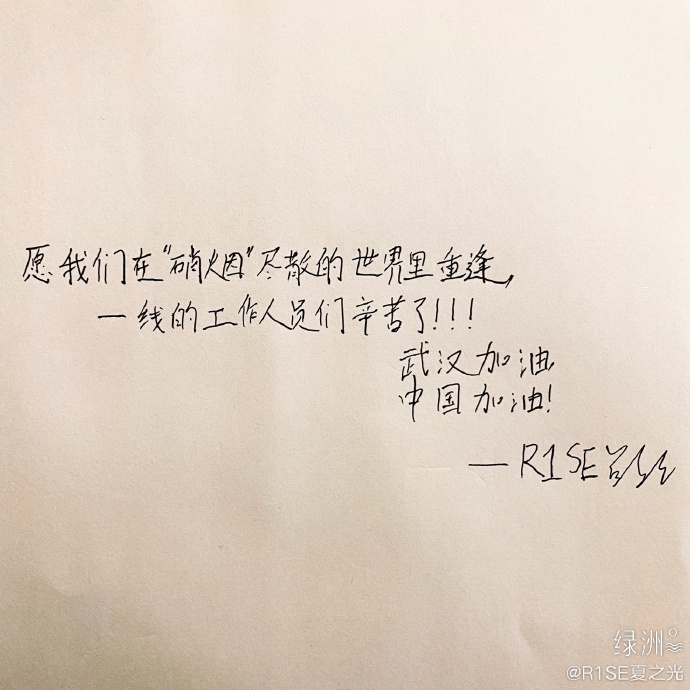 愿我们在“硝烟”尽散的世界里重逢，
一线的工作人员们辛苦了!!!
武汉加油
中国加油!
—R1SE
绿洲
@R1SE夏之光